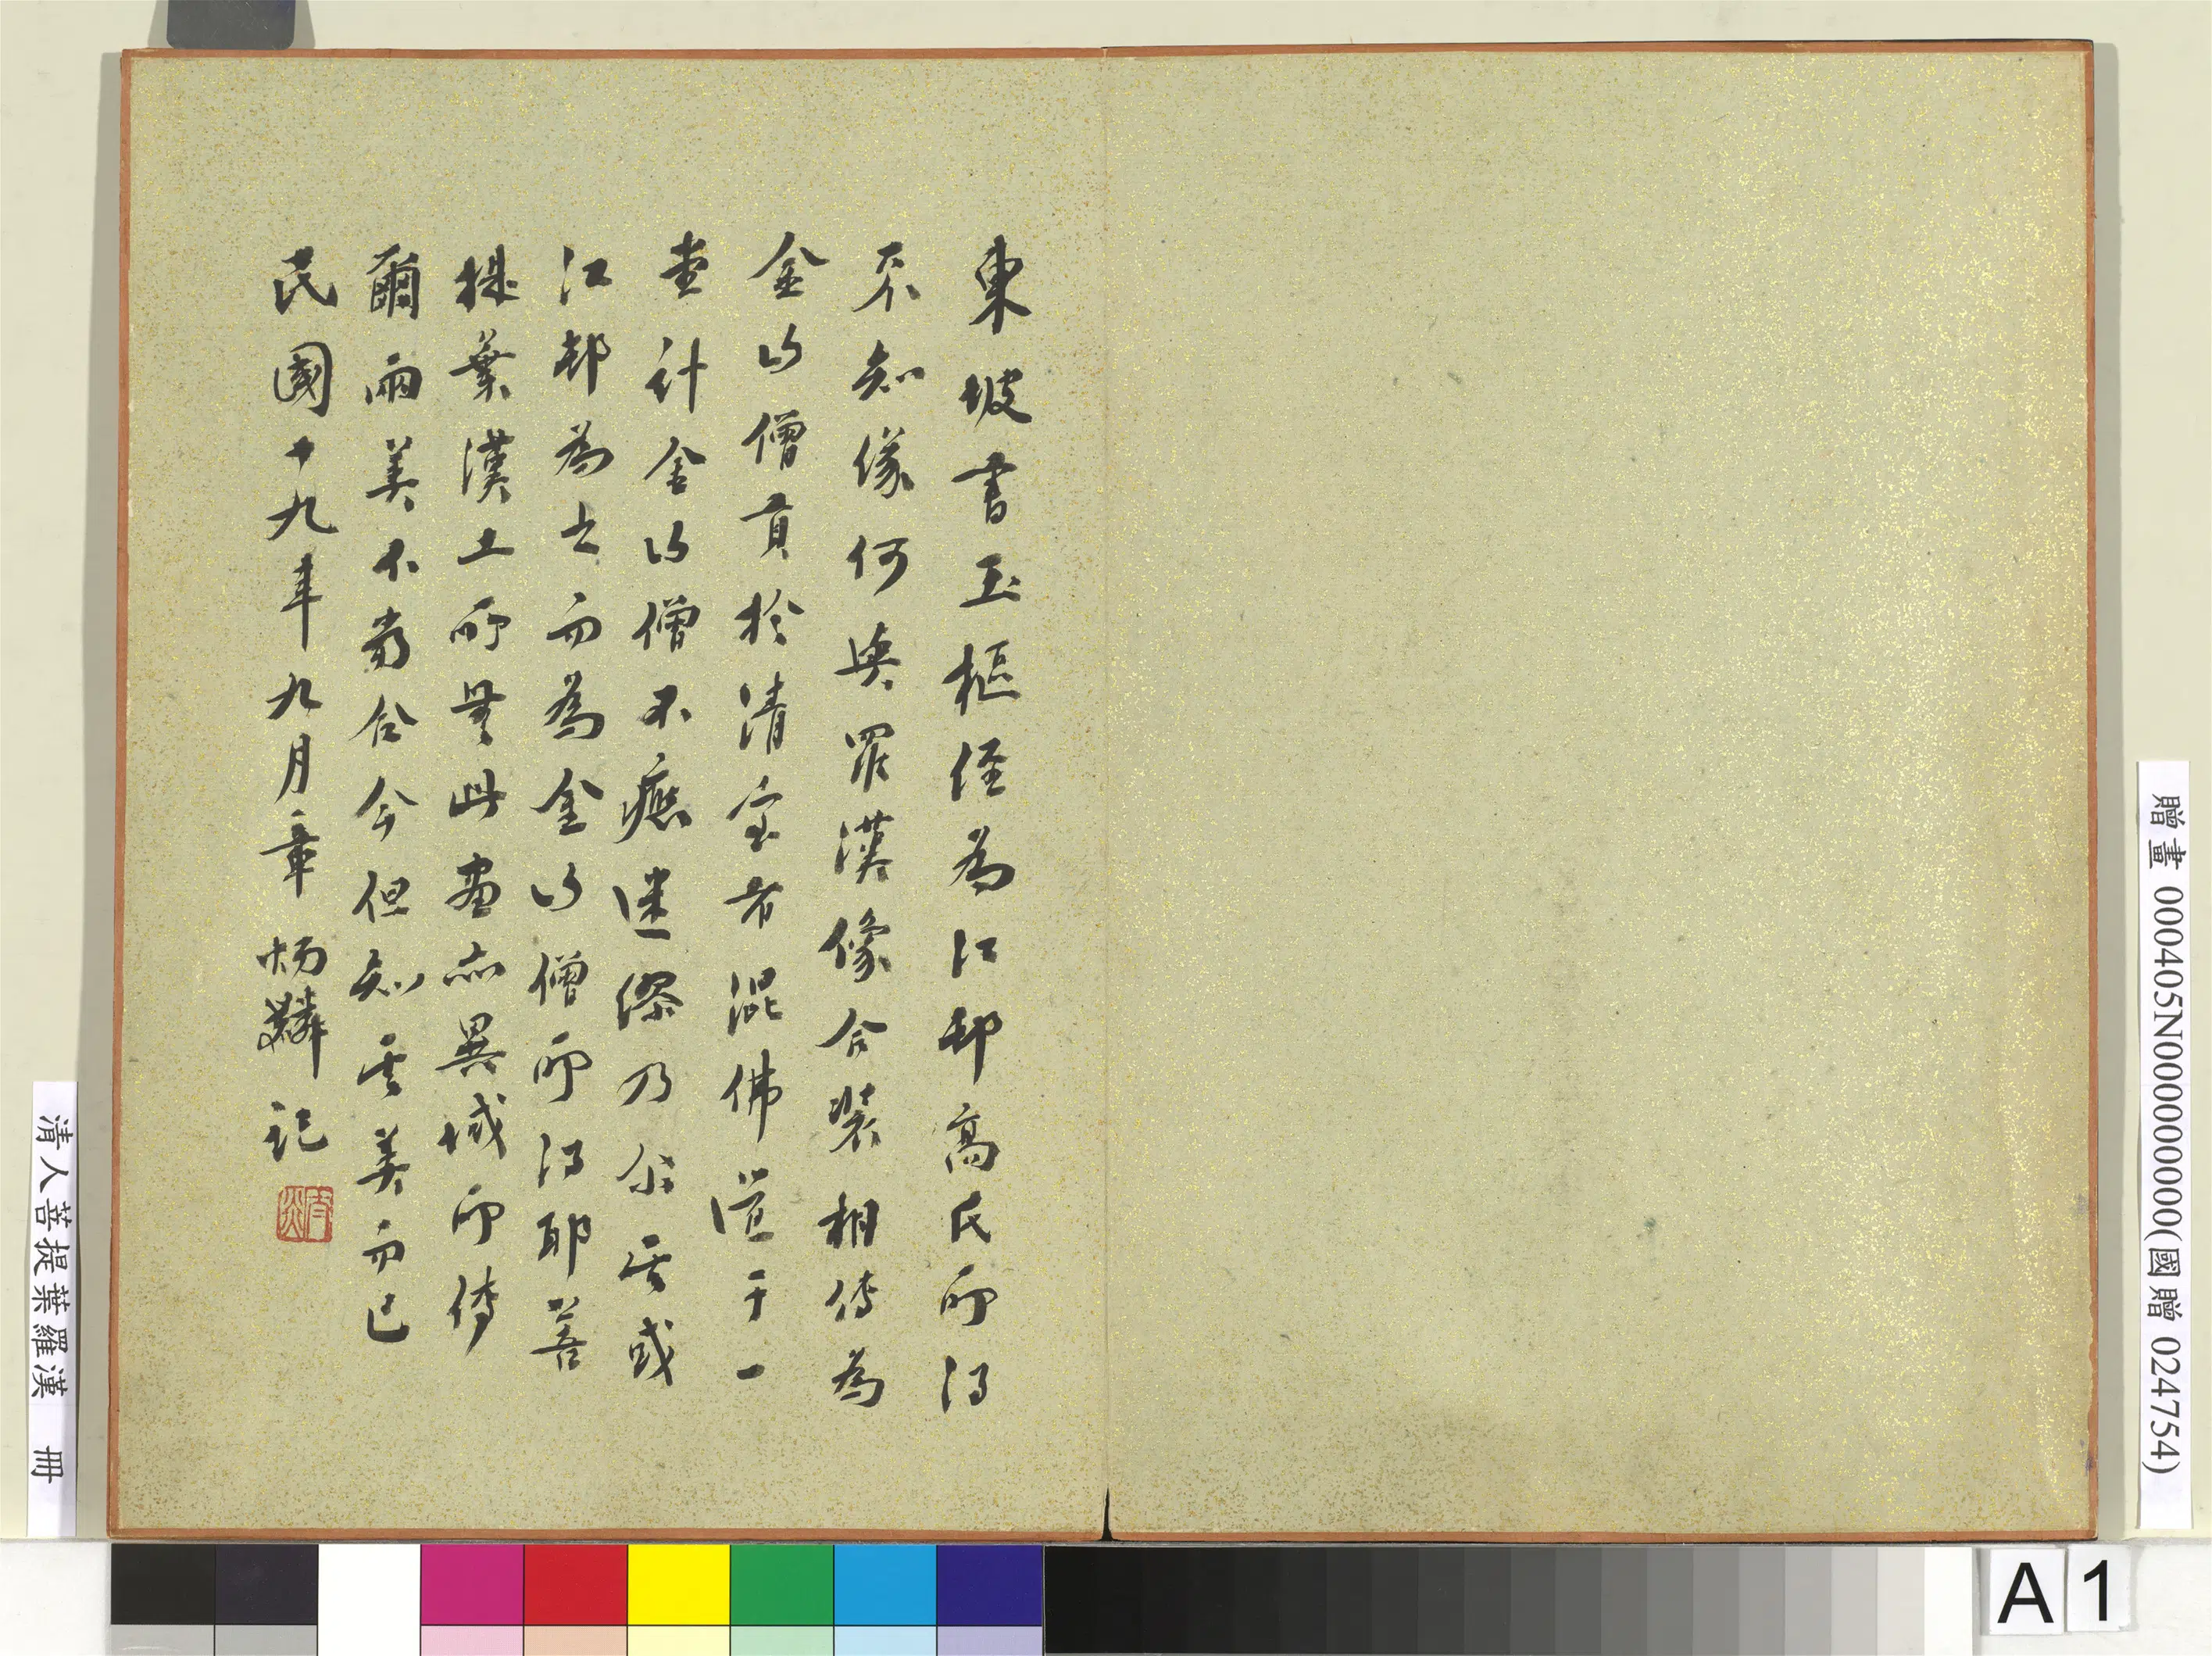 東坡書玉樞經為江邨高氏所得
不知緣何與羅漢像合裝相傳為
金山僧貢於清室者混佛道于一
金山僧不應迷謬乃尔其或
江邨為之而為金山僧所得耶菩
提葉漢土所無此畫亦異域所傳
爾兩美不當合今但知其美而已
民國十九年九月章炳麟記
贈畫 000405N000000000(國贈 024754)
清人菩提葉羅漢 冊
A 1